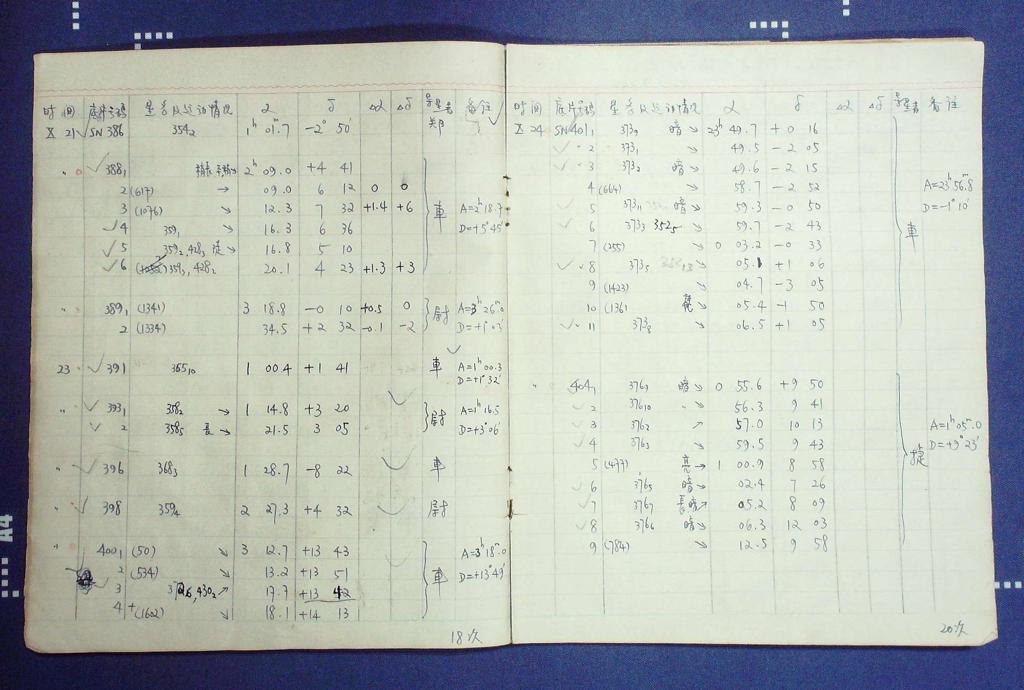 时间 底片号码 星名及运动情况 α δ Δα Δδ 导星者 备注
X 21 SN 386 354₂ 1ʰ 01.ᵐ7 -2° 50' 郑
" 388₁ 2ʰ 09.0 +4 41
2 (617) → 09.0 6 12 0 0
3 (1076) ↘ 12.3 7 32 +1.4 +6 車 A=2ʰ18.7
4 359₁ ↘ 16.3 6 36 D=+5°45'
5 359₂, 428₃ → 16.8 5 10
6 359₃, 428₂ 20.1 4 23 +1.3 +3
" 389₁ (1341) 3 18.8 -0 10 +0.5 0 尉 A=3ʰ26.ᵐ0
2 (1334) 34.5 +2 32 -0.1 -2 D=+1°03'
23 391 365₁₀ 1 00.4 +1 41 車 A=1ʰ00.3
D=+1°32'
" 393₁ 358₂ → 1 14.8 +3 20 尉 A=1ʰ16.5
2 358₅ 長 ↘ 21.5 3 05 D=+3°06'
" 396 368₃ 1 28.7 -8 22 車
" 398 359₄ 2 27.3 +4 32 尉
" 400₁ (50) ↘ 3 12.7 +13 43 A=3ʰ18.ᵐ0
2 (534) ↘ 13.2 +13 51 車 D=+13°49'
3 430₂ ↗ 17.7 +13 42
4 + (1602) ↘ 18.1 +14 13
18次
时间 底片号码 星名及运动情况 α δ Δα Δδ 导星者 备注
X 24 SN 401₁ 373₉ 暗 ↘ 23ʰ 49.ᵐ7 +0 16
2 373₁ ↘ 49.5 -2 05
3 373₂ 暗 ↘ 49.6 -2 15
4 (664) ↘ 58.7 -2 52 A=23ʰ56.ᵐ8
5 373₁₁ 暗 ↘ 59.3 -0 50 D=-1°10'
6 373₃ 352₅ ↘ 59.7 -2 43 車
7 (255) ↘ 0 03.2 -0 33
8 373₅ ↘ 05.1 +1 06
9 (1423) ↘ 04.7 -3 05
10 (1361 亮 ↘ 05.4 -1 50
11 373₈ ↘ 06.5 +1 05
" 404₁ 376₉ 暗 ↘ 0 55.6 +9 50
2 376₁₀ " ↘ 56.3 9 41
3 376₂ ↗ 57.0 10 13 A=1ʰ05.ᵐ0
4 376₃ ↘ 59.5 9 43 D=+9°23'
5 (477) 亮 → 1 00.9 8 58
6 376₅ 暗 ↘ 02.4 7 26
7 376₇ 長暗 ↗ 05.2 8 09
8 376₆ 暗 ↘ 06.3 12 03
9 (784) ↘ 12.5 9 58
20次
A4